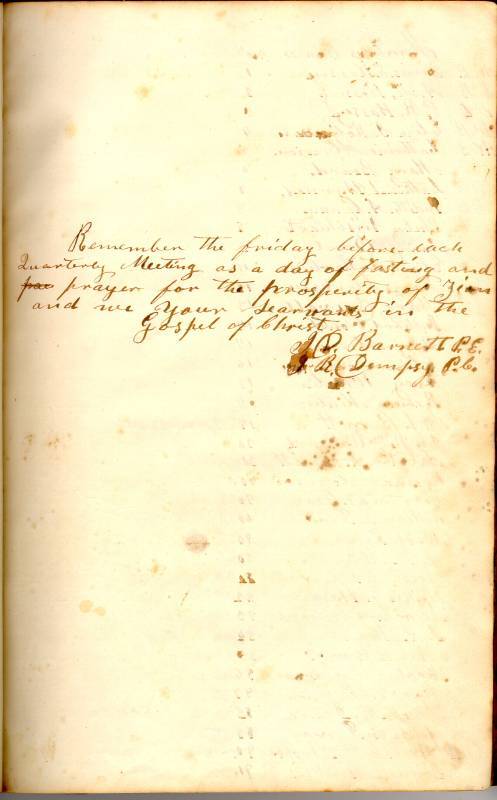 Remember the friday before each
Quarterly Meeting as a day of fasting and
prayer for the prosperity of Zion
and we Your Searvants in the
Gospel of Christ
J. D. Barnett P.E.
J. R. Dempsy P.C.